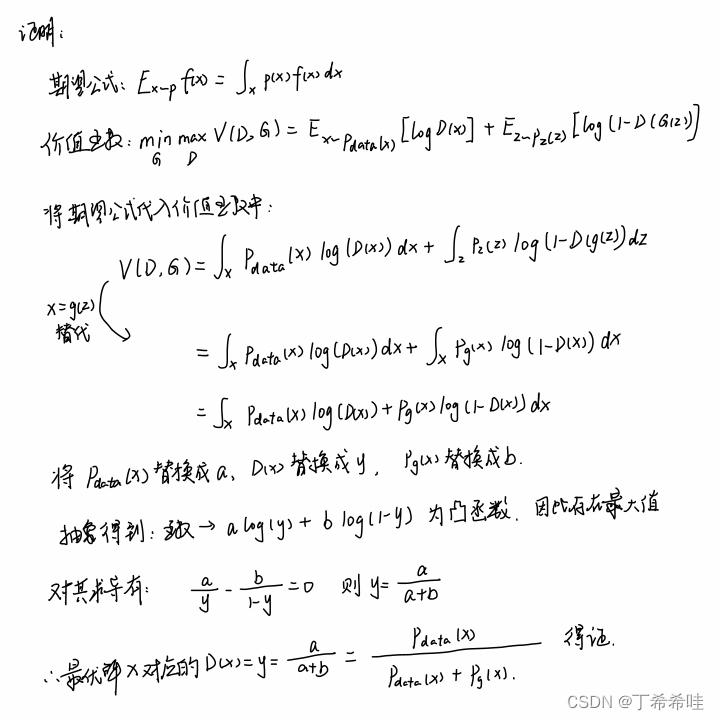 证明:
期望公式: E_{x~p} f(x) = ∫_x p(x) f(x) dx
价值函数: min_G max_D V(D, G) = E_{x~Pdata(x)} [log D(x)] + E_{z~Pz(z)} [log (1-D(G(z))]
将期望公式代入价值函数中:
V(D, G) = ∫_x Pdata(x) log(D(x)) dx + ∫_z Pz(z) log(1-D(g(z)) dz
x=g(z)
替代
= ∫_x Pdata(x) log(D(x)) dx + ∫_x Pg(x) log(1-D(x)) dx
= ∫_x Pdata(x) log(D(x)) + Pg(x) log(1-D(x)) dx
将 Pdata(x) 替换成 a, D(x) 替换成 y, Pg(x) 替换成 b.
抽象得到: 函数 → a log(y) + b log(1-y) 为凸函数. 因此存在最大值
对其求导有: a/y - b/(1-y) = 0 则 y = a/(a+b)
∴最优解 x 对应的 D(x) = y = a/(a+b) = Pdata(x)/(Pdata(x) + Pg(x)). 得证.
CSDN @丁希希哇